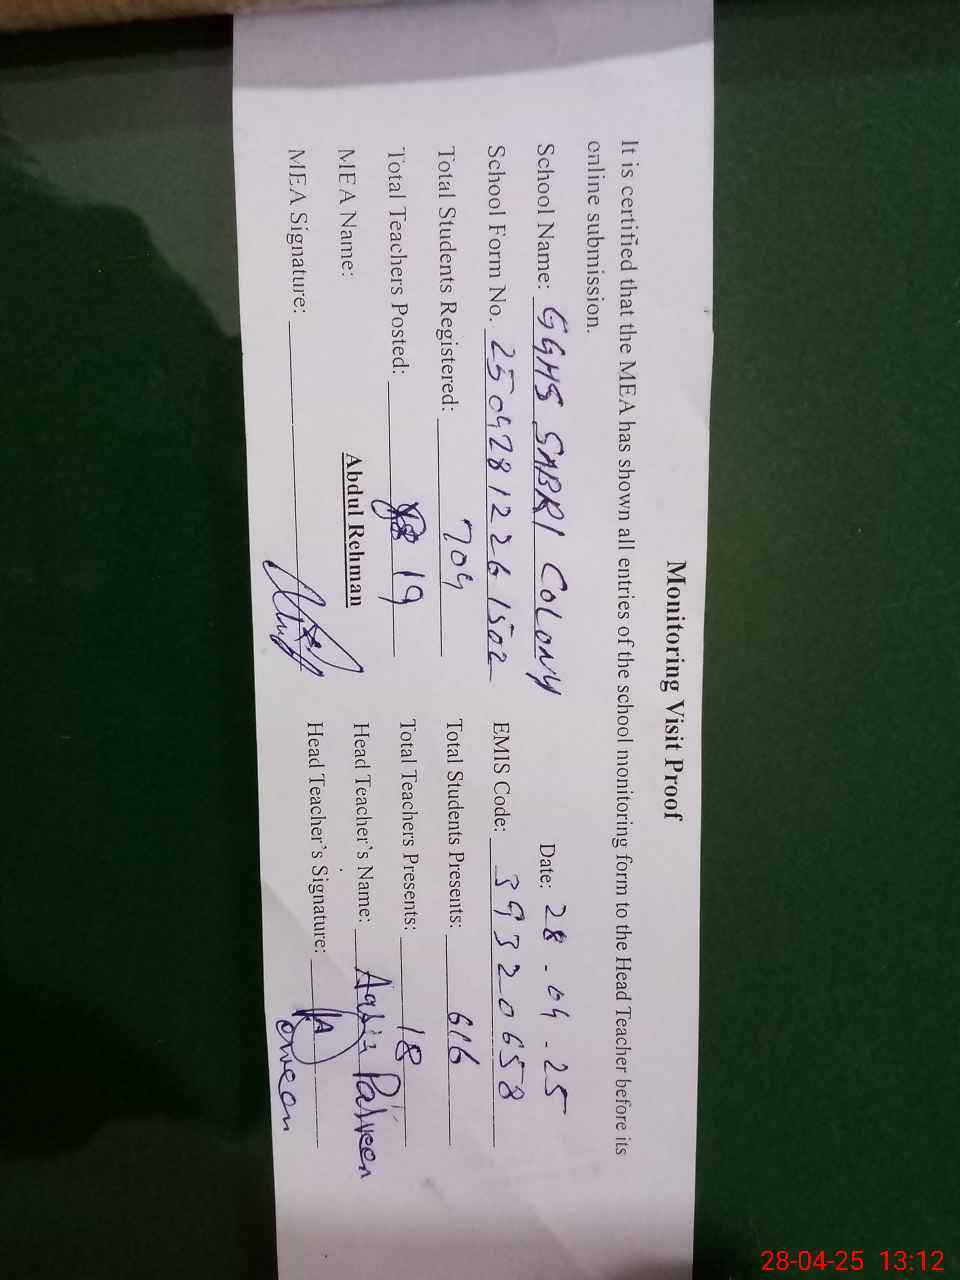 Monitoring Visit Proof
It is certified that the MEA has shown all entries of the school monitoring form to the Head Teacher before its
online submission.
School Name: GGHS SABRI COLONY Date: 28-04-25
School Form No. 25042812261502 EMIS Code: 39320658
Total Students Registered: 709 Total Students Presents: 616
Total Teachers Posted: 19 Total Teachers Presents: 18
MEA Name: Abdul Rehman Head Teacher's Name: Parveen
MEA Signature: Head Teacher's Signature:
28-04-25 13:12